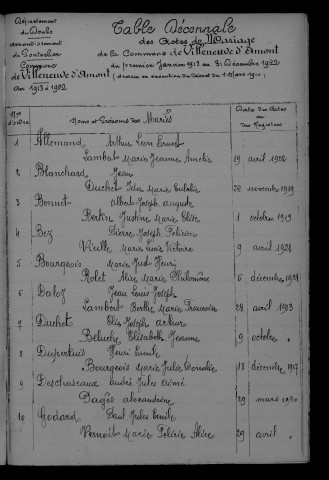 Département
du Doubs
arrondissement
de Pontarlier
Commune
de Villeneuve d'Amont
An 1913 à 1922
Table Décennale
des Actes de Mariage
de la Commune de Villeneuve d'Amont
du premier Janvier 1913 au 31 Décembre 1922
(dressée en exécution du Décret du
Nos d'ordre
Noms et Prénoms des Mariés
Date des Actes
ou
des Registres
1 Allemand Arthur Léon Ernest
Lambert Marie Jeanne Amélie 19 avril
2 Blanchard Jean
Duchet Ida Marie Eulalie 29 novembre 1919
3 Bonnet albert Joseph auguste
Bertin Justine Marie Elise 1 octobre 1919
4 Bez Pierre Joseph Félicien
Vieille Marie Victoire 9 avril
5 Bourgeois Marie Just Henri
Rolet Alice Marie Philomène 6 décembre
6 Daloz Jean Louis Joseph
Lambert Berthe Marie Françoise 28 avril 1913
7 Duchet Elie Joseph arthur
Beluche Elisabeth Jeanne 9 octobre "
8 Dupertuis Henri Emile
Bourgeois Marie Julie Cornélie 18 décembre 1917
9 Deschaseaux andré Jules aimé
Pagès alexandrine 29 mars 1920
10 Godard Paul Jules Emile
Vernoit Marie Félicie Alice 29 avril "